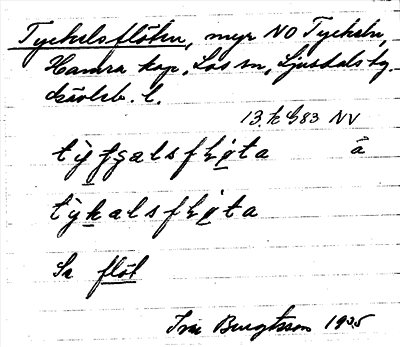 Tyckelsflöten, myr NO Tyckeln,
Hamra kap. Los sn, Ljusdals tg.
Gävleb. l.
13 h G83 NV
tỳçgalsfḷøta å
tỳkalsfḷøta
Se flöt
Bengtsson 1935